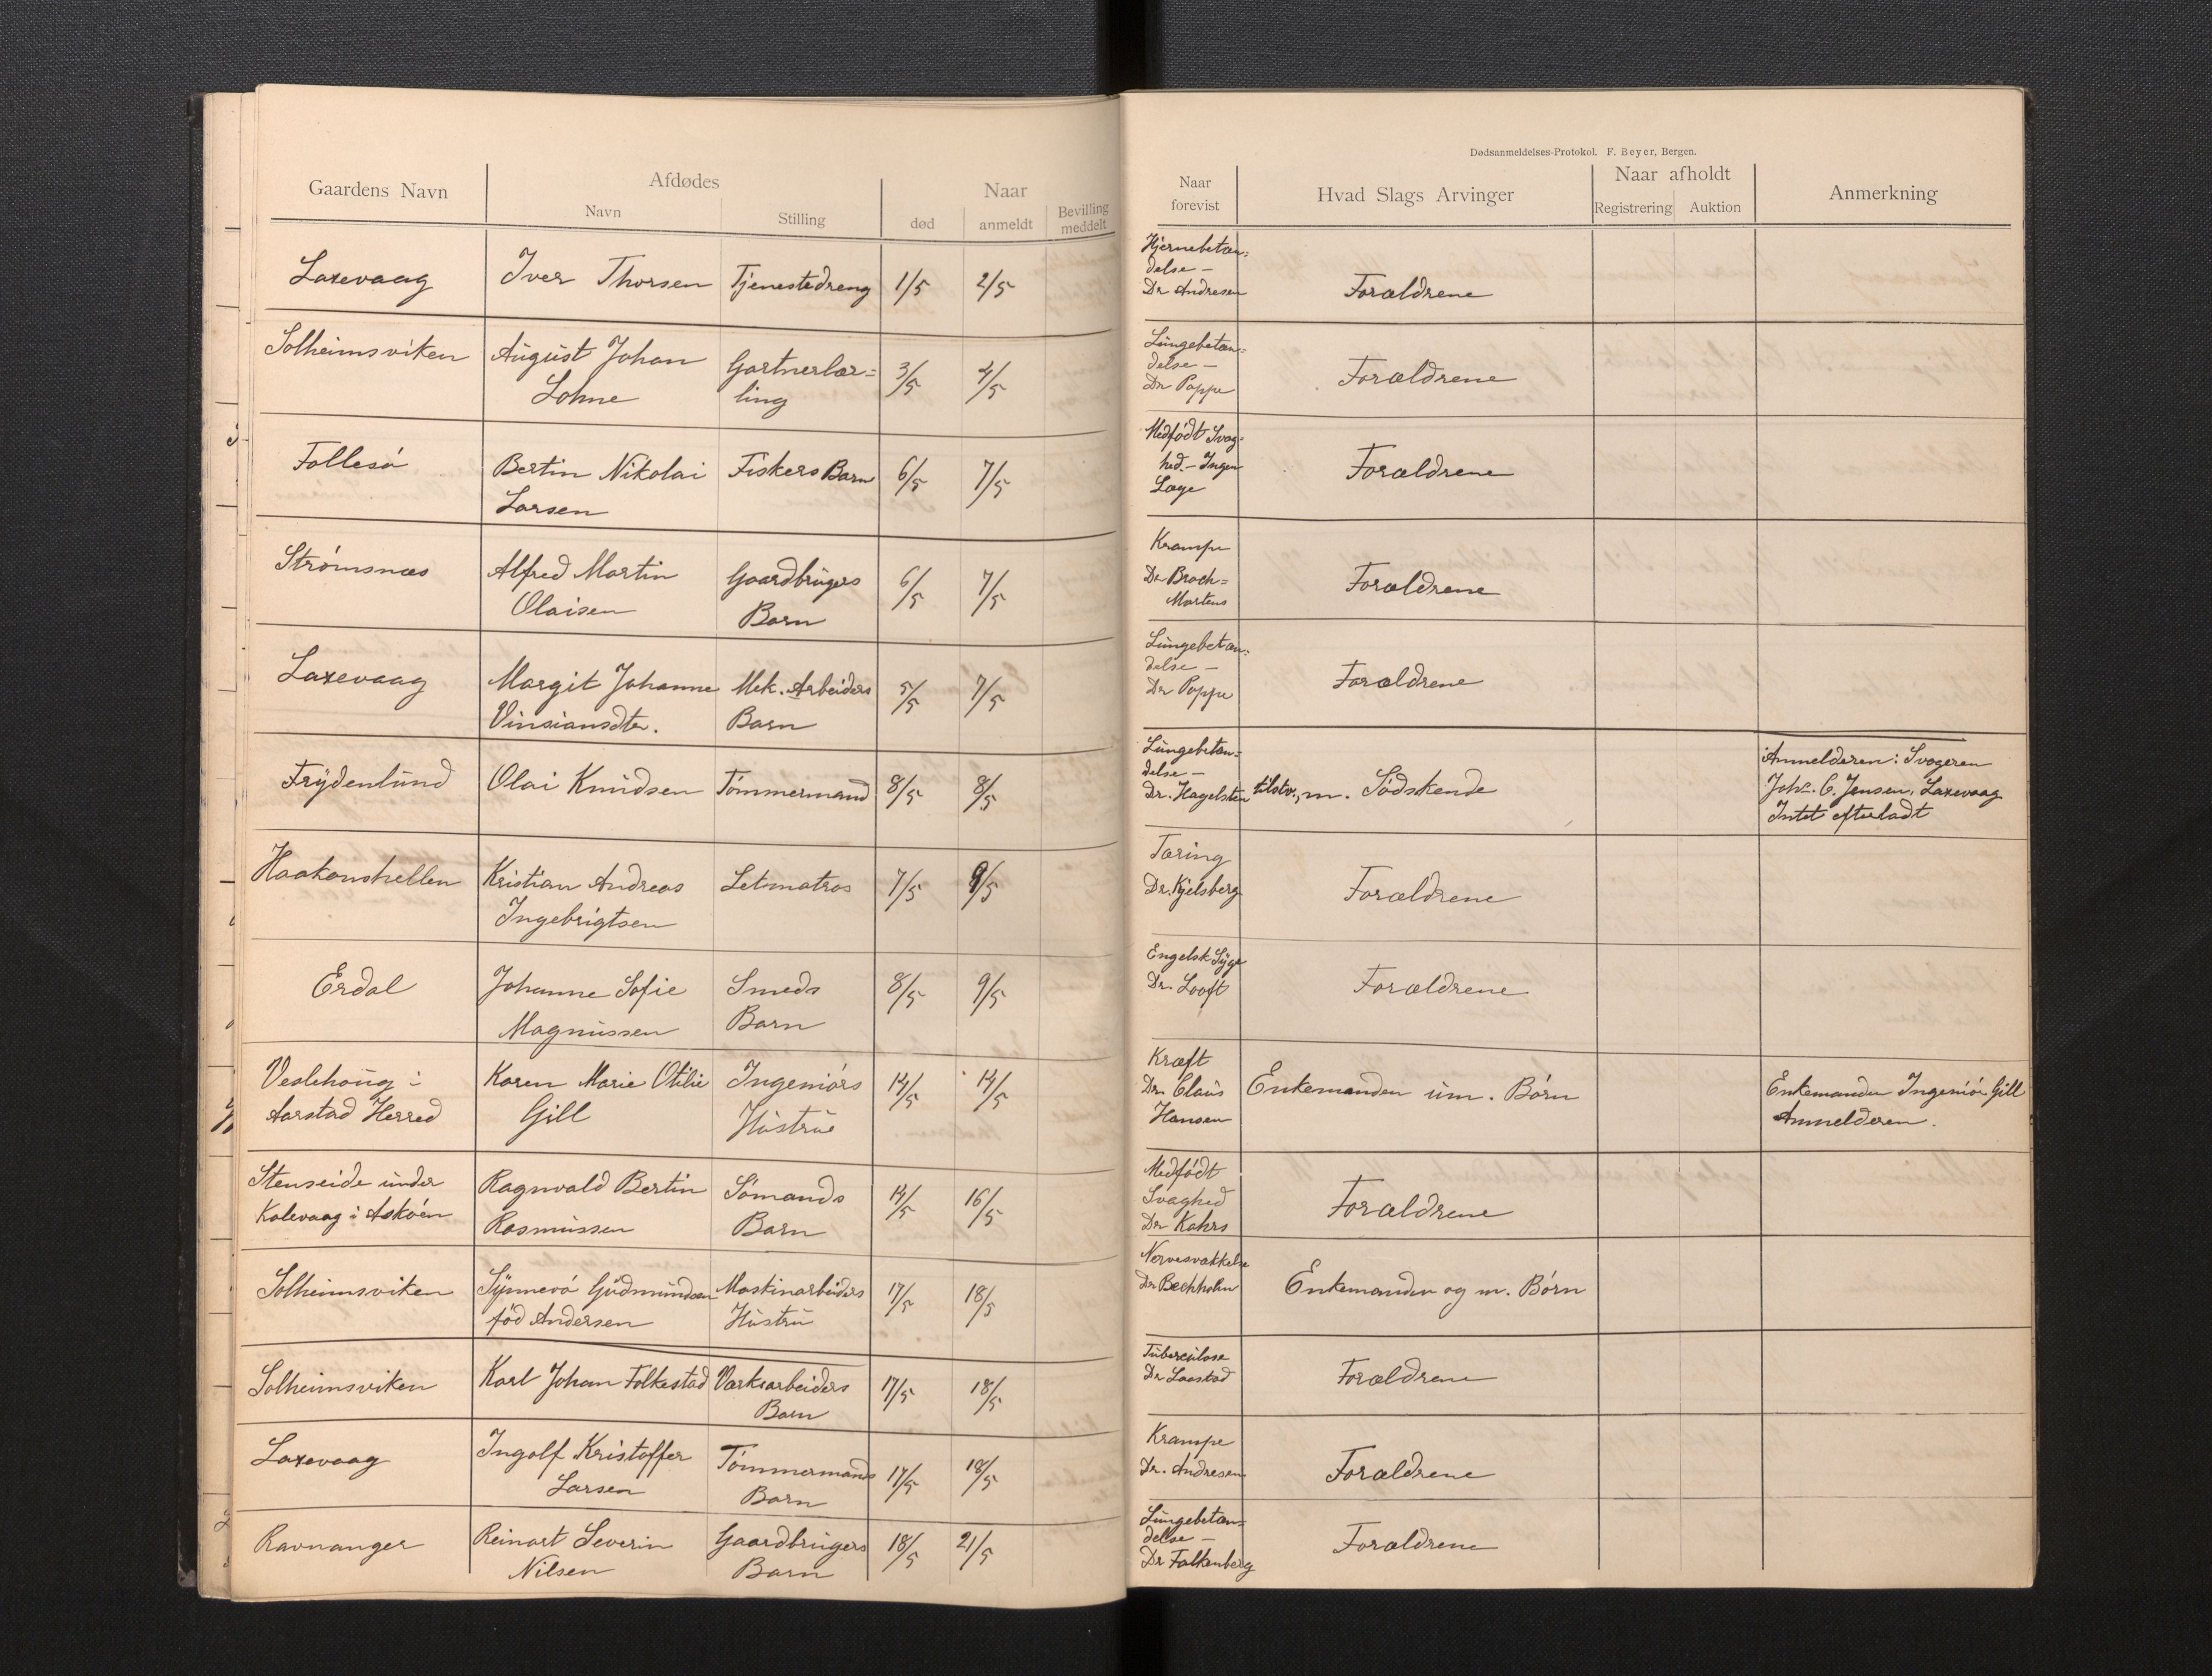 Dødsanmeldelses-Protokol. F. Beyer, Bergen.
Gaardens Navn
Afdødes
Navn
Stilling
Naar
død
anmeldt
Bevilling meddelt
Naar forevist
Hvad Slags Arvinger
Naar afholdt
Registrering
Auktion
Anmerkning
Laxevaag Iver Thorsen Tjenestedreng 1/5 2/5 Hjernebetæn=
delse –
Dr Andresen Forældrene
Solheimsviken August Johan Gartnerlær= 3/5 4/5 Lungebetæn=
Lohne ling delse –
Dr Poppe Forældrene
Follesö Bertin Nikolai Fiskers Barn 6/5 7/5 Medfødt Svag=
Larsen hed – Ingen
Læge Forældrene
Strømsnæs Alfred Martin Gaardbrugers 6/5 7/5 Krampe
Olaisen Barn Dr Broch=
Martens Forældrene
Laxevaag Margit Johanne Mek. Arbeiders 5/5 7/5 Lungebetæn=
Vinsiansdtr. Barn delse –
Dr Poppe Forældrene
Frydenlund Olai Knudsen Tømmermand 8/5 8/5 Lungebetæn=
delse –
Dr. Hagelsten tilstv., m. Södskende
Anmelderen: Svogeren
Johs. C. Jensen, Laxevaag
Intet efterladt
Haakonshellen Kristian Andreas Letmatros 7/5 9/5 Tæring
Ingebrigtsen Dr. Kjelsberg Forældrene
Erdal Johanne Sofie Smeds 8/5 9/5 Engelsk Syge
Magnussen Barn Dr. Looft Forældrene
Veslehoug i Karen Marie Otilie Ingeniörs 14/5 14/5 Kræft
Aarstad Herred Gill Hustrue Dr. Claus
Hansen Enkemanden um. Børn
Enkemanden Ingeniör Gill
Anmelderen.
Stenseide under Ragnvald Bertin Sömands 14/5 16/5 Medfødt
Kolevaag i Asköen Rasmussen Barn Svaghed
Dr Kahrs Forældrene
Solheimsviken Synnevö Gudmundsen Maskinarbeiders 17/5 18/5 Nervesvækkelse
föd Andersen Hustru Dr Bechholm Enkemanden og m. Børn
Solheimsviken Karl Johan Folkestad Værksarbeiders 17/5 18/5 Tuberculose
Barn Dr Laastad Forældrene
Laxevaag Ingolf Kristoffer Tömmermands 17/5 18/5 Krampe
Larsen Barn Dr. Andresen Forældrene
Ravnanger Reinart Severin Gaardbrugers 18/5 21/5 Lungebetæn=
Nilsen Barn delse –
Dr Falkenberg Forældrene